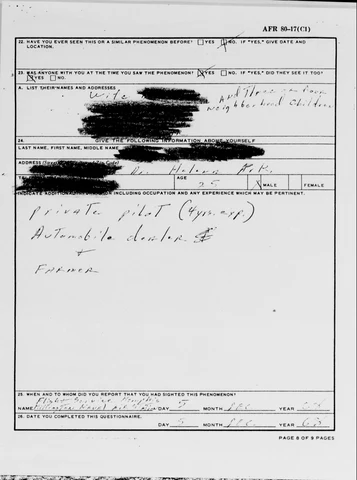 AFR 80-17(C1)
22. HAVE YOU EVER SEEN THIS OR A SIMILAR PHENOMENON BEFORE? YES NO. IF "YES," GIVE DATE AND
LOCATION.
23. WAS ANYONE WITH YOU AT THE TIME YOU SAW THE PHENOMENON? YES IF "YES," DID THEY SEE IT TOO?
YES NO
A. LIST THEIR NAMES AND ADDRESSES
Wife And Three
neighborhood Children
24. GIVE THE FOLLOWING INFORMATION ABOUT YOURSELF
LAST NAME, FIRST NAME, MIDDLE NAME
ADDRESS
Helena Ark.
AGE
25 MALE FEMALE
INDICATE INCLUDING OCCUPATION AND ANY EXPERIENCE WHICH MAY BE PERTINENT.
private pilot (4yrs. exp.)
Automobile dealer
+
FARMER
25. WHEN AND TO WHOM DID YOU REPORT THAT YOU HAD SIGHTED THIS PHENOMENON?
Flight Service Memphis
NAME Naval DAY 5 MONTH DEC YEAR 68
26. DATE YOU COMPLETED THIS QUESTIONNAIRE.
DAY 5 MONTH DEC. YEAR 68
PAGE 8 OF 9 PAGES